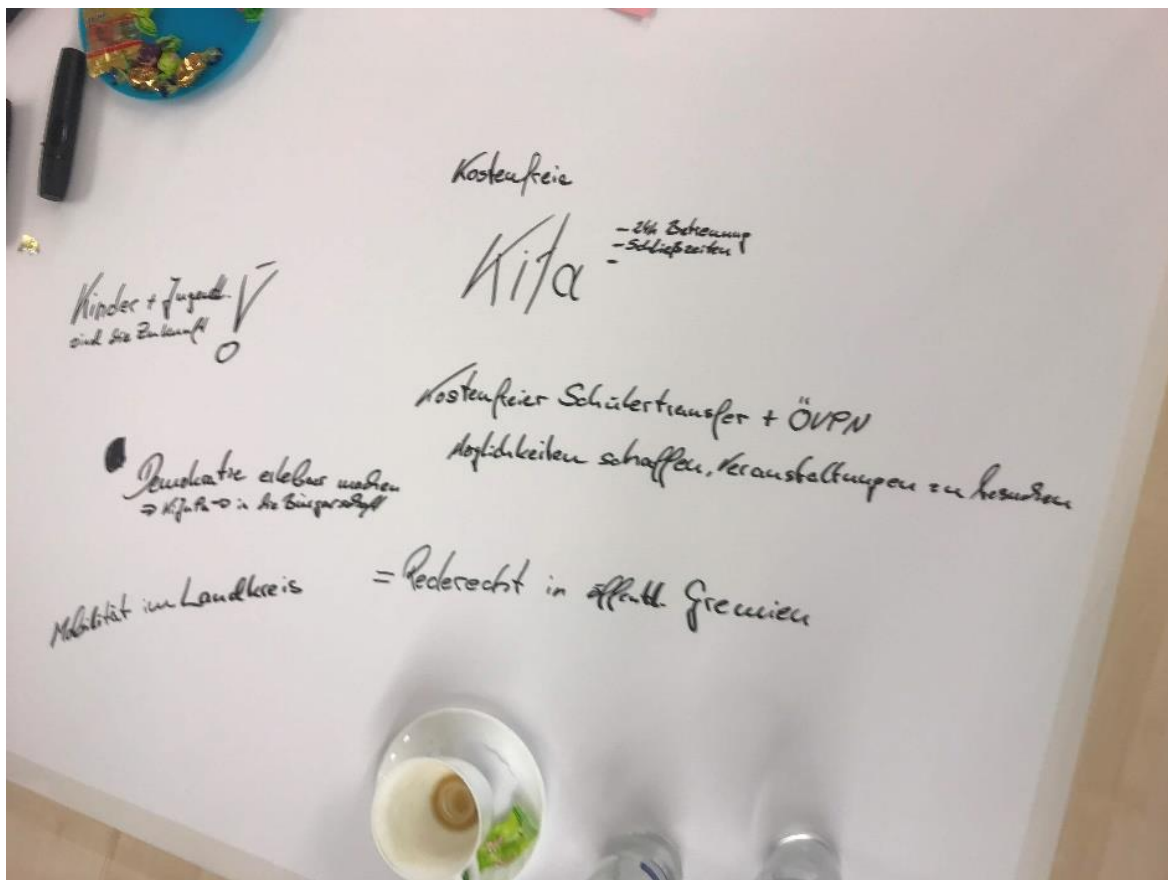 Kostenfreie
Kita
- 24h Betreuung
- Schließzeiten
-
Kinder + Jugendl.
sind die Zukunft!
Kostenfreier Schülertransfer + ÖVPN
Möglichkeiten schaffen, Veranstaltungen zu besuchen
Demokratie erlebbar machen
⇒ KiJuPa → in die Bürgerschaft
= Rederecht in öffentl. Gremien
Mobilität im Landkreis